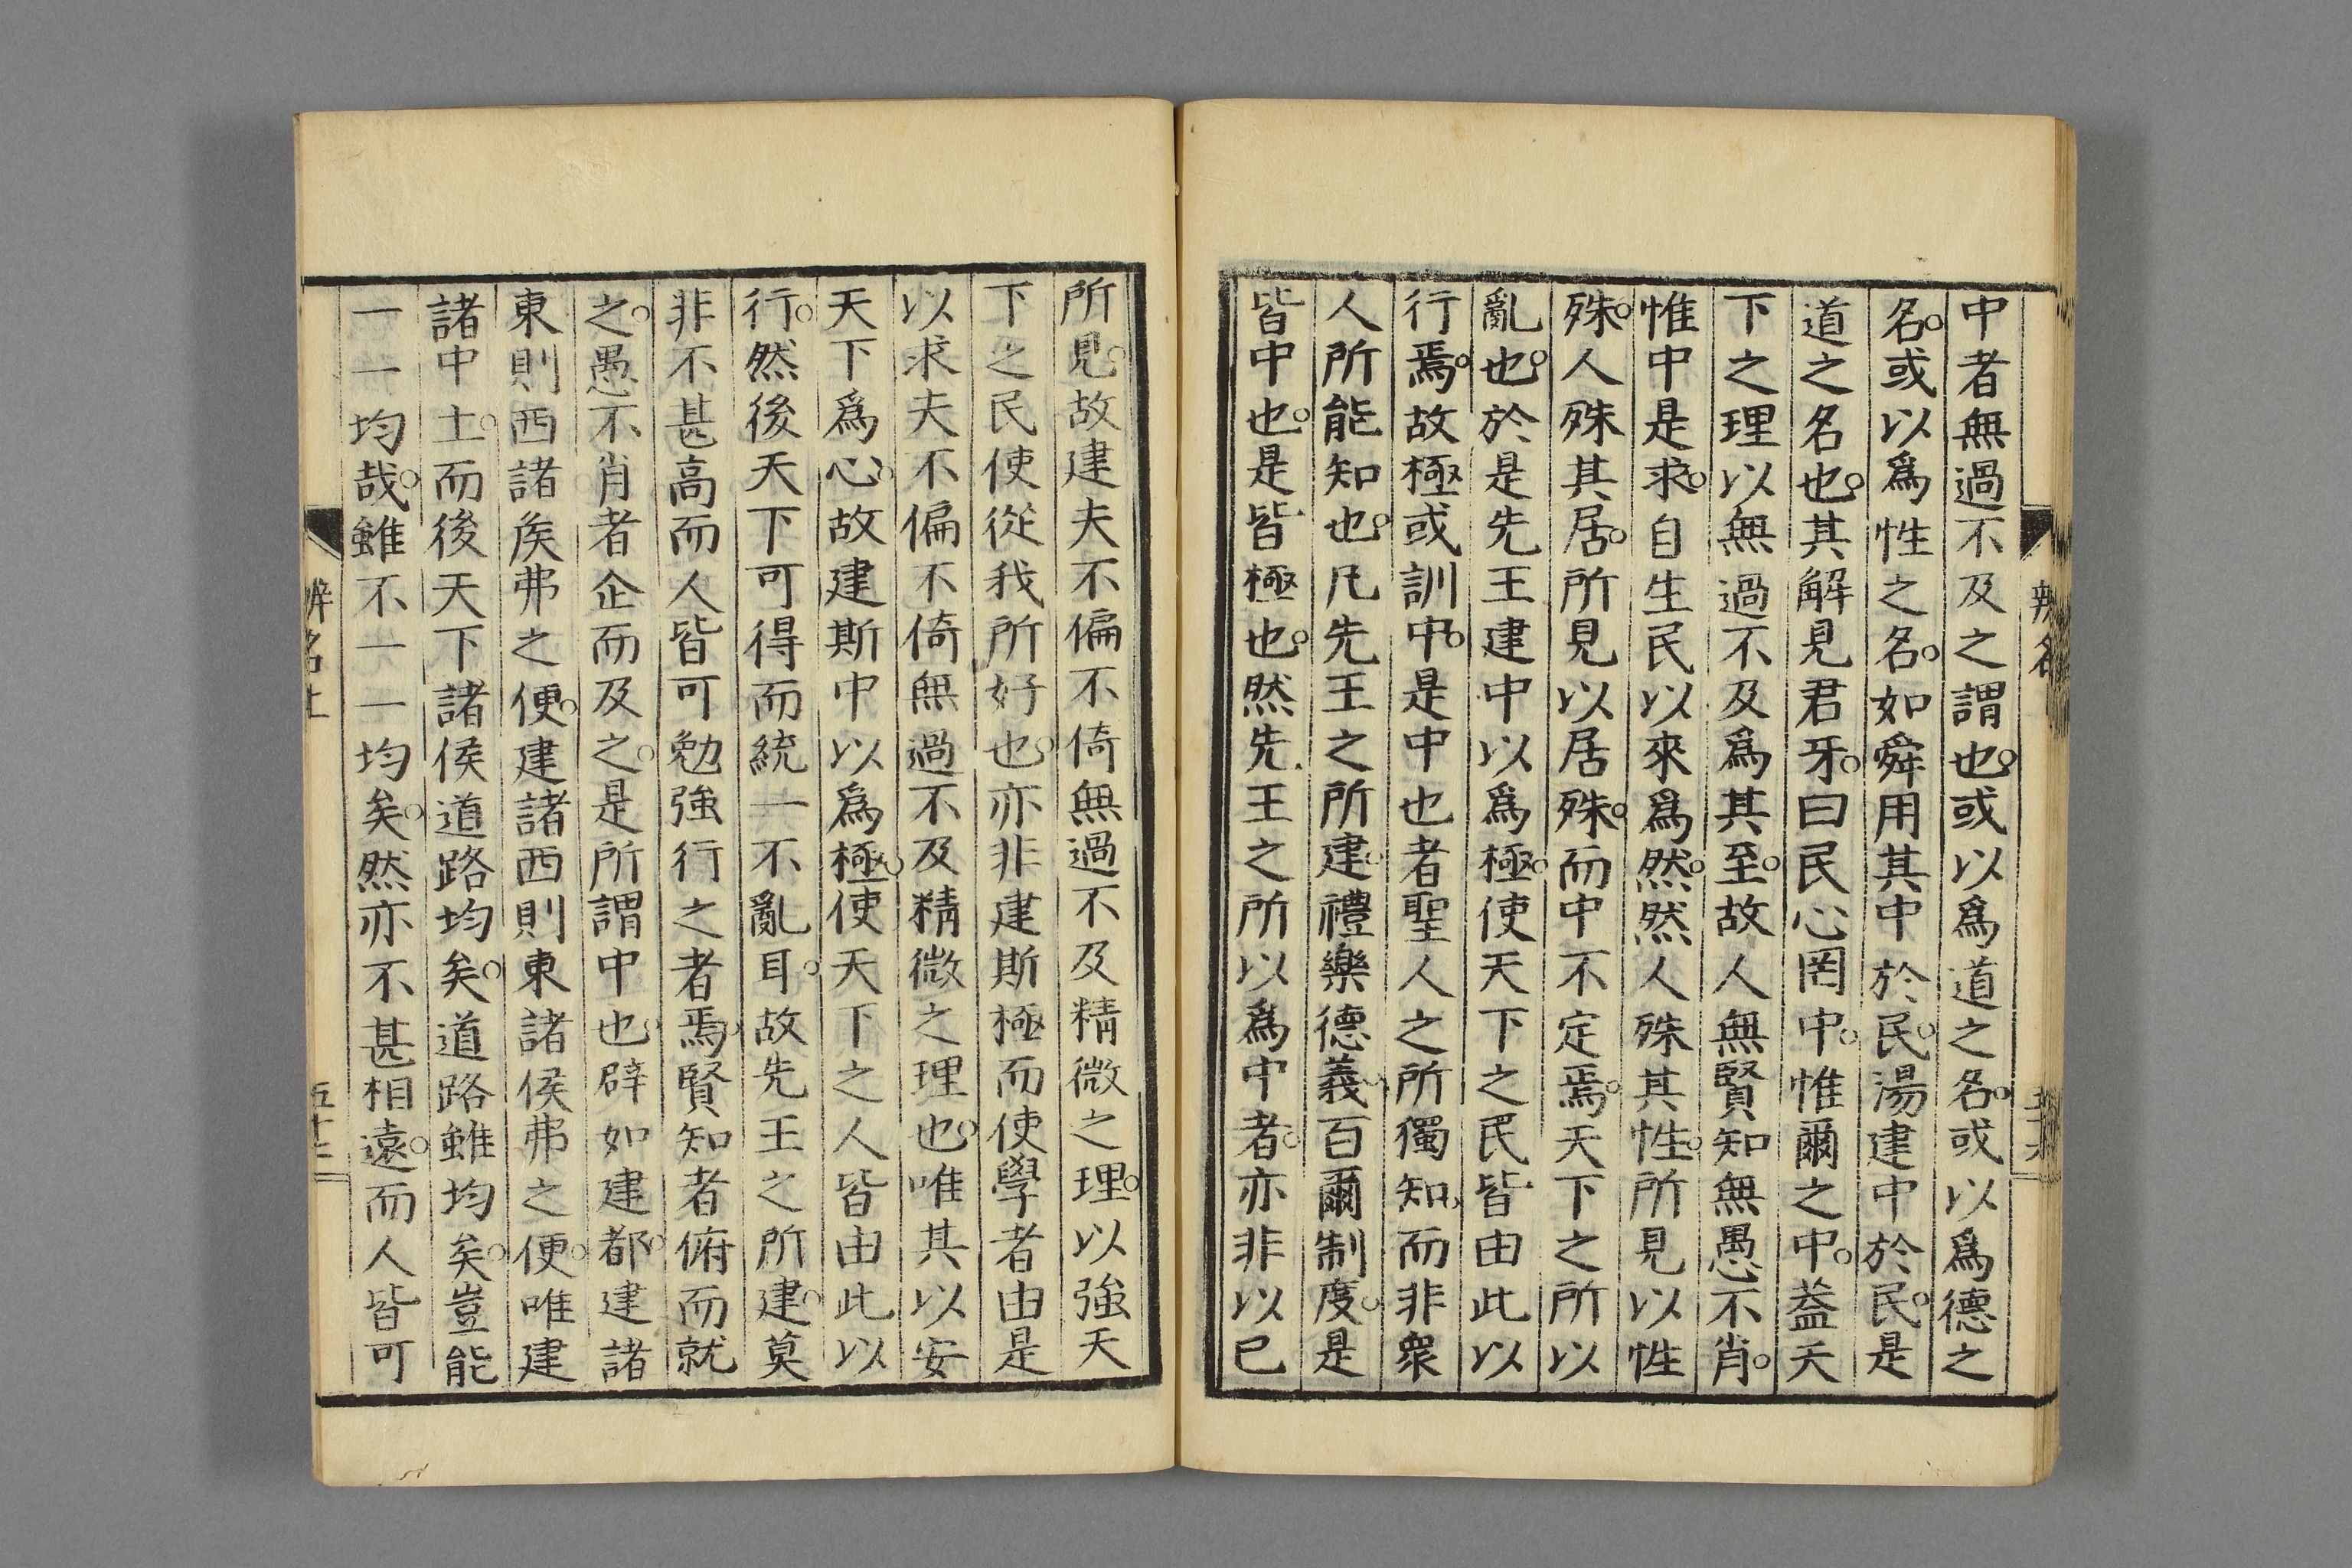 中者無過不及之謂也。或以爲道之名。或以爲德之
名。或以爲性之名。如舜用其中於民。湯建中於民。是
道之名也。其解見君牙。曰民心罔中。惟爾之中。葢天
下之理以無過不及爲其至。故人無賢知無愚不肖。
惟中是求。自生民以來爲然。然人殊其性。所見以性
殊。人殊其居。所見以居殊。而中不定焉。天下之所以
亂也。於是先王建中以爲極。使天下之民皆由此以
行焉。故極或訓中。是中也者聖人之所獨知。而非衆
人所能知也。凡先王之所建。禮樂德義。百爾制度。是
皆中也。是皆極也。然先王之所以爲中者。亦非以已
所見。故建夫不偏不倚無過不及精微之理。以強天
下之民使從我所好也。亦非建斯極而使學者由是
以求夫不偏不倚無過不及精微之理也。唯其以安
天下爲心。故建斯中以爲極。使天下之人皆由此以
行。然後天下可得而統一不亂耳。故先王之所建。莫
非不甚高而人皆可勉強行之者焉。賢知者俯而就
之。愚不肖者企而及之。是所謂中也。辟如建都。建諸
東則西諸矦弗之便。建諸西則東諸侯弗之便。唯建
諸中土。而後天下諸侯道路均矣。道路雖均矣。豈能
一一均哉。雖不一一均矣。然亦不甚相遠。而人皆可
辨名上
五十二